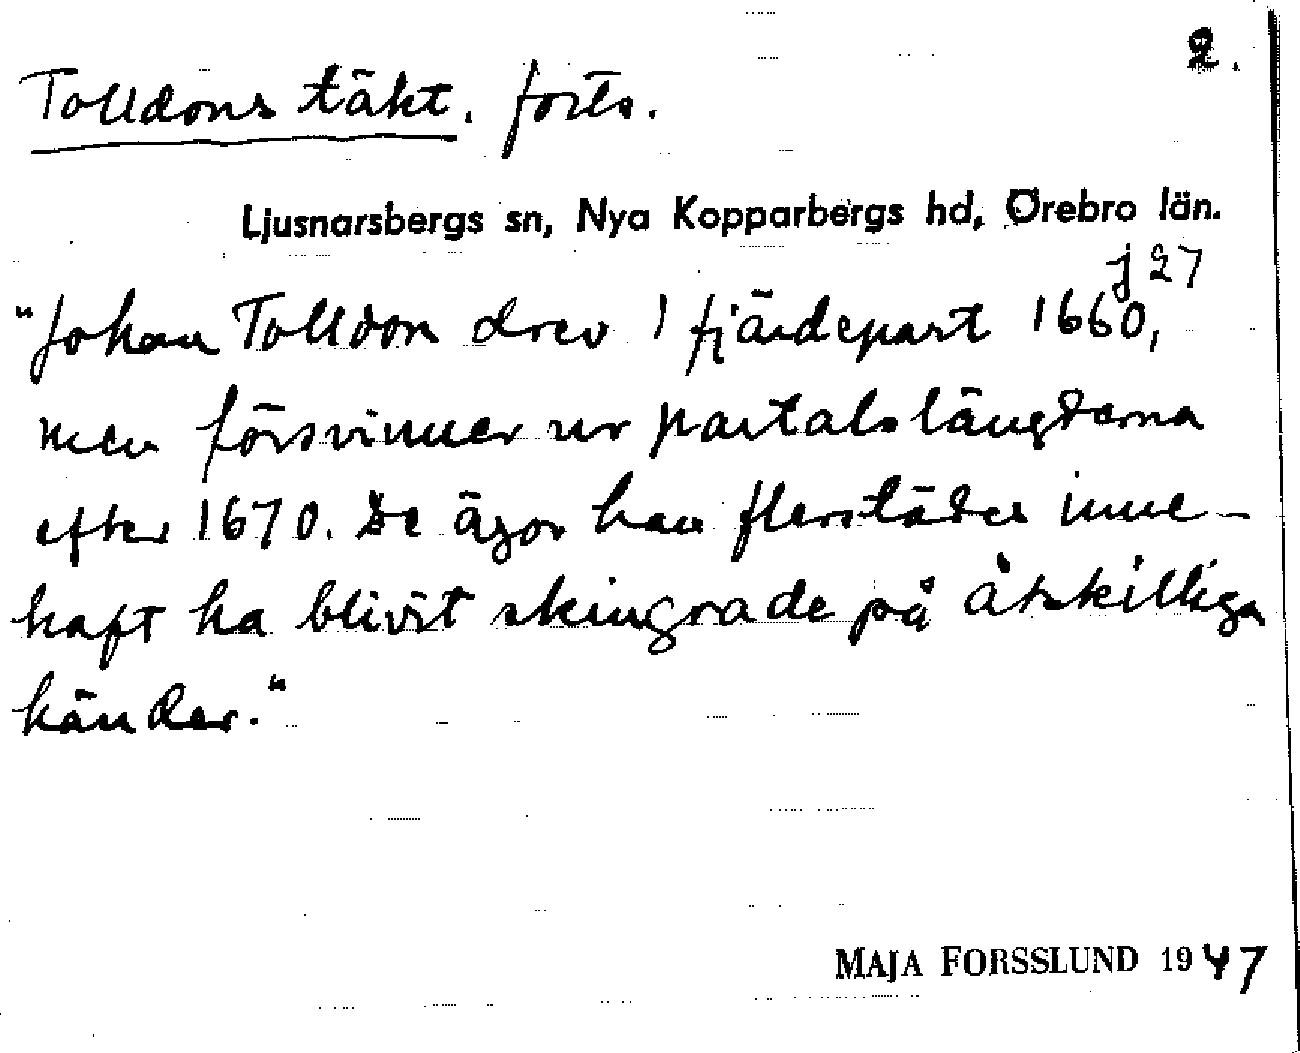 2.
Tolldons täkt. forts.
Ljusnarsbergs sn, Nya Kopparbergs hd, Örebro län.
j 27
"Johan Tolldon drev 1 fjärdepart 1660,
men försvinner ur partalslängderna
efter 1670. De ägor han flerstädes inne-
haft ha blivit skingrade på åtskilliga
händer."
MAJA FORSSLUND 1947